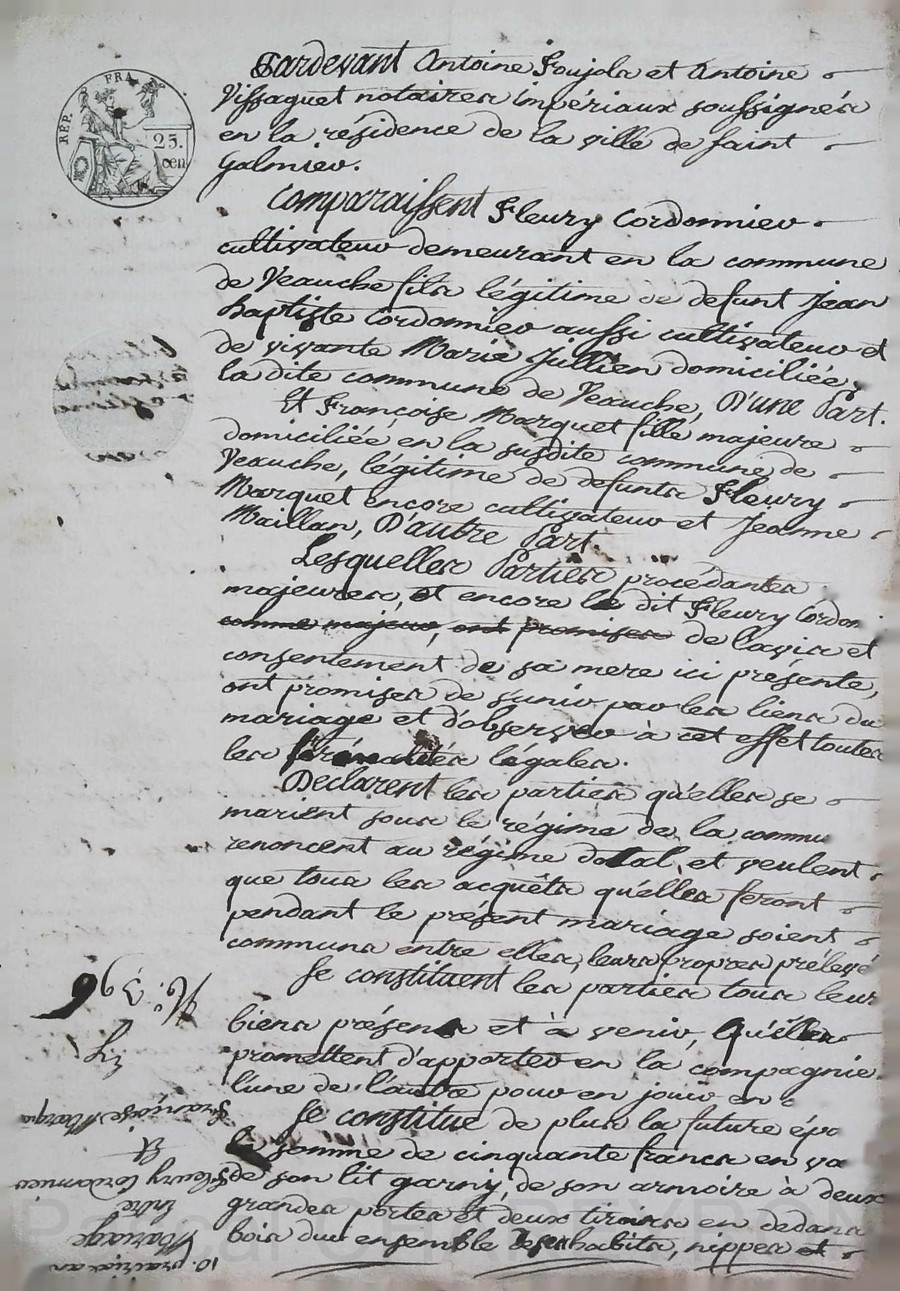 REP. FRA
25.
cen
Pardevant Antoine Soujola et Antoine
Vissaguet notaires impériaux soussignés
en la résidence de la ville de saint
Galmier.
Comparaissent Fleury Cordonnier
cultivateur demeurant en la commune
de Veauche fils légitime de defunt Jean
Baptiste Cordonnier aussi cultivateur et
de vivante Marie Jullien domiciliée,
la dite commune de Veauche, D'une Part.
Et Françoise Marquet fille majeure
domiciliée en la susdite commune de
Veauche, légitime de defunts Fleury
Marquet encore cultivateur et Jeanne
Maillan, D'autre Part.
Lesquelles Parties procédantes
majeures, et encore le dit Fleury Cordon
comme majeur, ont promises de l'avis et
consentement de sa mere ici présente,
ont promises de s'unir par les liens du
mariage et d'observer à cet effet toutes
les formalités légales.
Déclarent les parties qu'elles se
marient sous le régime de la commu
renoncent au régime dotal, et veulent
que tous les acquêts qu'elles feront
pendant le présent mariage soient
communs entre elles, leurs propres prélevé
Se constituent les parties tous leur
biens présens et à venir, qu'elles
promettent d'apporter en la compagnie
l'une de l'autre pour en jouir en c
Se constitue de plus la future épo
la somme de cinquante francs en va
de son lit garny, de son armoire à deux
grandes portes et deux tiroirs en dedans
bois dur ensemble ses habits, nippes et
10. prairial an
Mariage
Entre
Fleury Cordonnier
Et
Françoise Marqu